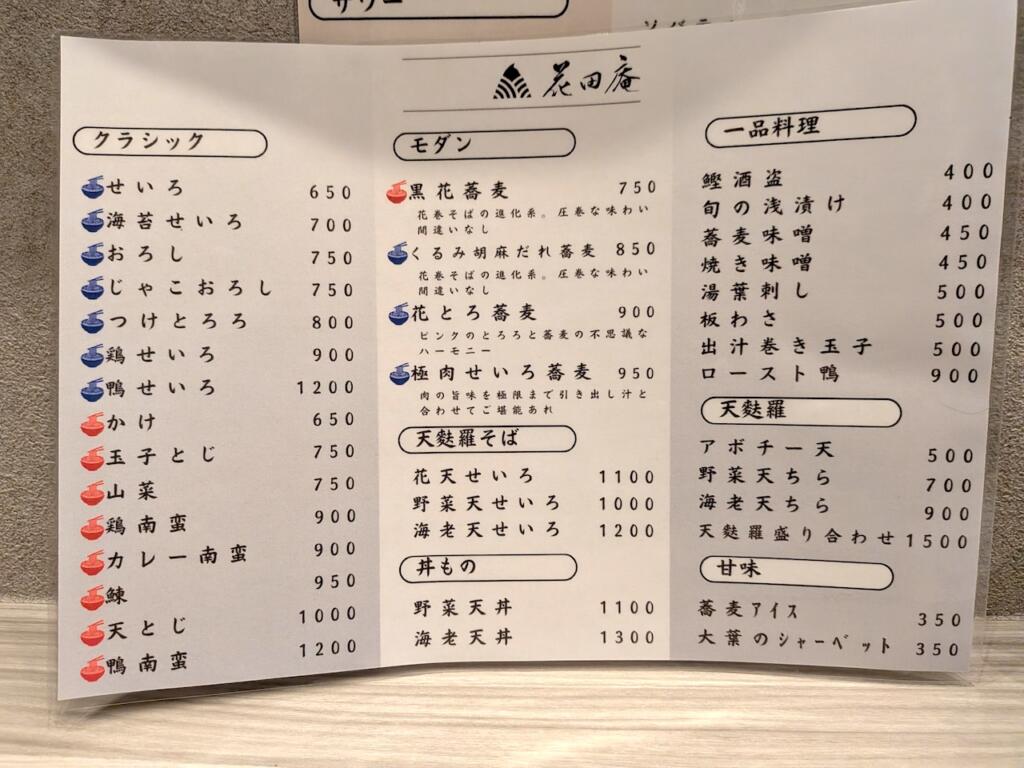 サワー
花田庵
クラシック
せいろ 650
海苔せいろ 700
おろし 750
じゃこおろし 750
つけとろろ 800
鶏せいろ 900
鴨せいろ 1200
かけ 650
玉子とじ 750
山菜 750
鶏南蛮 900
カレー南蛮 900
鰊 950
天とじ 1000
鴨南蛮 1200
モダン
黒花蕎麦 750
花巻そばの進化系。圧巻な味わい
間違いなし
くるみ胡麻だれ蕎麦 850
花巻そばの進化系。圧巻な味わい
間違いなし
花とろ蕎麦 900
ピンクのとろろと蕎麦の不思議な
ハーモニー
極肉せいろ蕎麦 950
肉の旨味を極限まで引き出し汁と
合わせてご堪能あれ
天麩羅そば
花天せいろ 1100
野菜天せいろ 1000
海老天せいろ 1200
丼もの
野菜天丼 1100
海老天丼 1300
一品料理
鰹酒盗 400
旬の浅漬け 400
蕎麦味噌 450
焼き味噌 450
湯葉刺し 500
板わさ 500
出汁巻き玉子 500
ロースト鴨 900
天麩羅
アボチー天 500
野菜天ちら 700
海老天ちら 900
天麩羅盛り合わせ 1500
甘味
蕎麦アイス 350
大葉のシャーベット 350